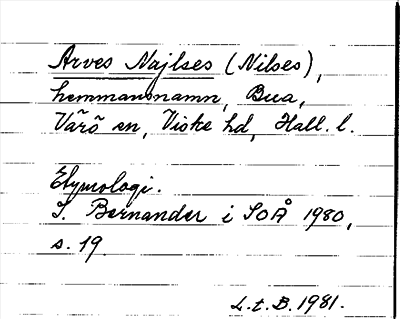 Arves Najlses (Nilses),
hemmansnamn, Bua,
Värö sn, Viske hd, Hall. l.
Etymologi.
I. Bernander i SOÅ 1980,
s. 19.
L.t.B. 1981.